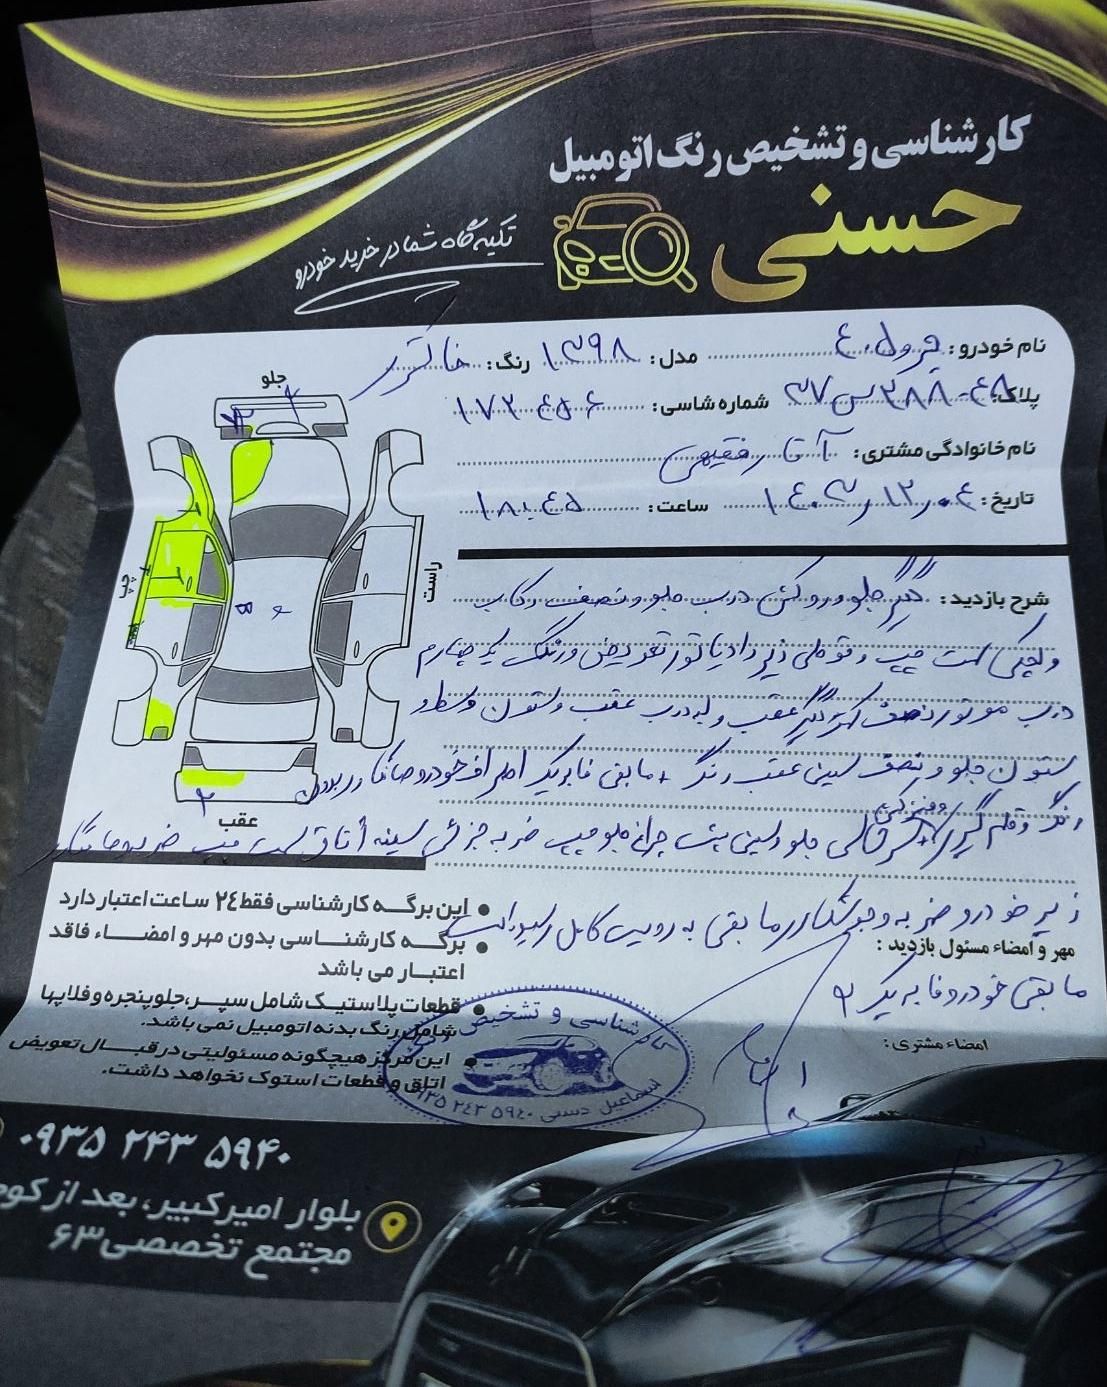 کارشناسی و تشخیص رنگ اتومبیل
حسنی
تکیه گاه شما در خرید خودرو
نام خودرو: مدل: ۱۳۹۸ رنگ: خاکستری
پلاک: ۳۸۸ س ۳۷ شماره شاسی: ۱۷۲۴۵۶
نام خانوادگی مشتری: آقا رفقیهی
تاریخ: ۱۴۰۳/۱۲/۰۴ ساعت: ۱۸:۴۵
جلو
چپ
راست
عقب
شرح بازدید: گلگیر جلو و روکش درب جلو و نصف رکاب
و لچکی ست چپ و قوطی زیر رادیاتور تعویض و رنگ یک چهارم
درب موتور نصف گلگیر عقب و لبه درب عقب و ستون وسط و
ستون جلو و نصف سینی عقب رنگ مابقی فابریک اطراف خودرو صافکاری بدون
رنگ و قلم گیری جلو سینی پشت چراغ جلو چپ ضربه جزئی سینه اتاق ست چپ ضربه
زیر خودرو ضربه و جوشکاری مابقی به رویت کامل
مابقی خودرو فابریک
مهر و امضاء مسئول بازدید:
امضاء مشتری:
• این برگه کارشناسی فقط ۲۴ ساعت اعتبار دارد
• برگه کارشناسی بدون مهر و امضاء فاقد
اعتبار می باشد
• قطعات پلاستیک شامل سپر، جلوپنجره و فلاپها
شامل رنگ بدنه اتومبیل نمی باشد.
• این مرکز هیچگونه مسئولیتی در قبال تعویض
اتاق و قطعات استوک نخواهد داشت.
کارشناسی و تشخیص
اسماعیل حسنی ۰۹۳۵ ۲۴۳ ۵۹۴۰
۰۹۳۵ ۲۴۳ ۵۹۴۰
بلوار امیرکبیر، بعد از
مجتمع تخصصی ۶۳